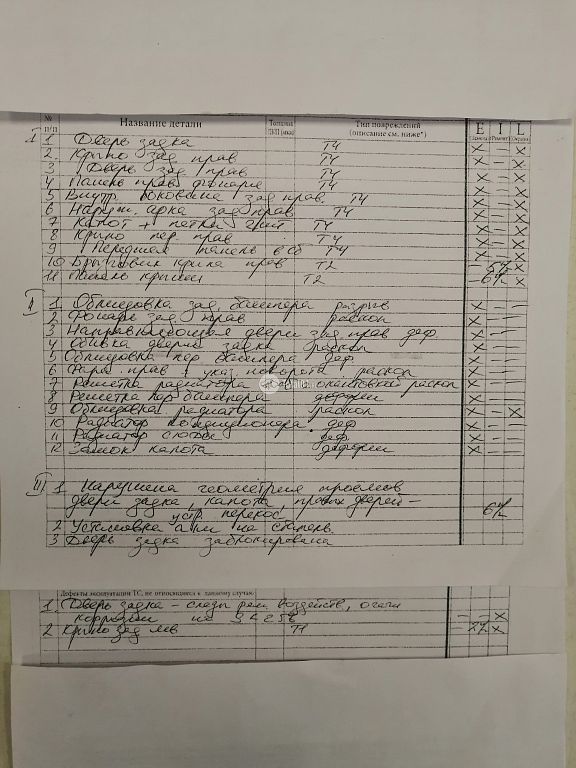 № п/п Название детали Тип повреждений (описание см. ниже*) E I L
I 1 Дверь задка Т4 X — X
2. Крыло зад прав Т4 X — X
3 Дверь зад прав Т4 X — X
4 Панель прав фонаря Т4 X — X
5 Внутр боковина зад прав. Т4 X — X
6 Наруж. арка зад прав Т4 X — X
7 Капот + петли Т4 X — X
8 Крыло пер. прав Т4 X — X
9 Передняя панель в сб Т4 X — X
10 крыла прав Т2 — X
11 Панель крыши Т2 — X
II 1. Облицовка зад. бампера разрыв X — —
2 Фонарь зад прав раскол X — —
3 Направляющая двери зад прав деф. X — —
4 Обивка двери задка раскол X — —
5 Облицовка пер бампера деф X — —
6 Фара прав + указ поворота раскол X — —
7 Решетка радиатора раскол X — —
8 Решетка пер бампера X — —
9 Облицовка радиатора раскол X — X
10 Радиатор кондиционера деф X — —
11 Радиатор деф. X — —
12 Замок капота X — —
III 1 Нарушена геометрия проемов
двери задка, капота, правых дверей —
перекос
2 Установка а/м на стапель
3 Дверь задка заблокирована
Дефекты эксплуатации ТС, не относящиеся к данному случаю
1 Дверь задка – следы рем. воздейств, очаги
коррозии — — X
2 Крыло зад лев Т1 — X